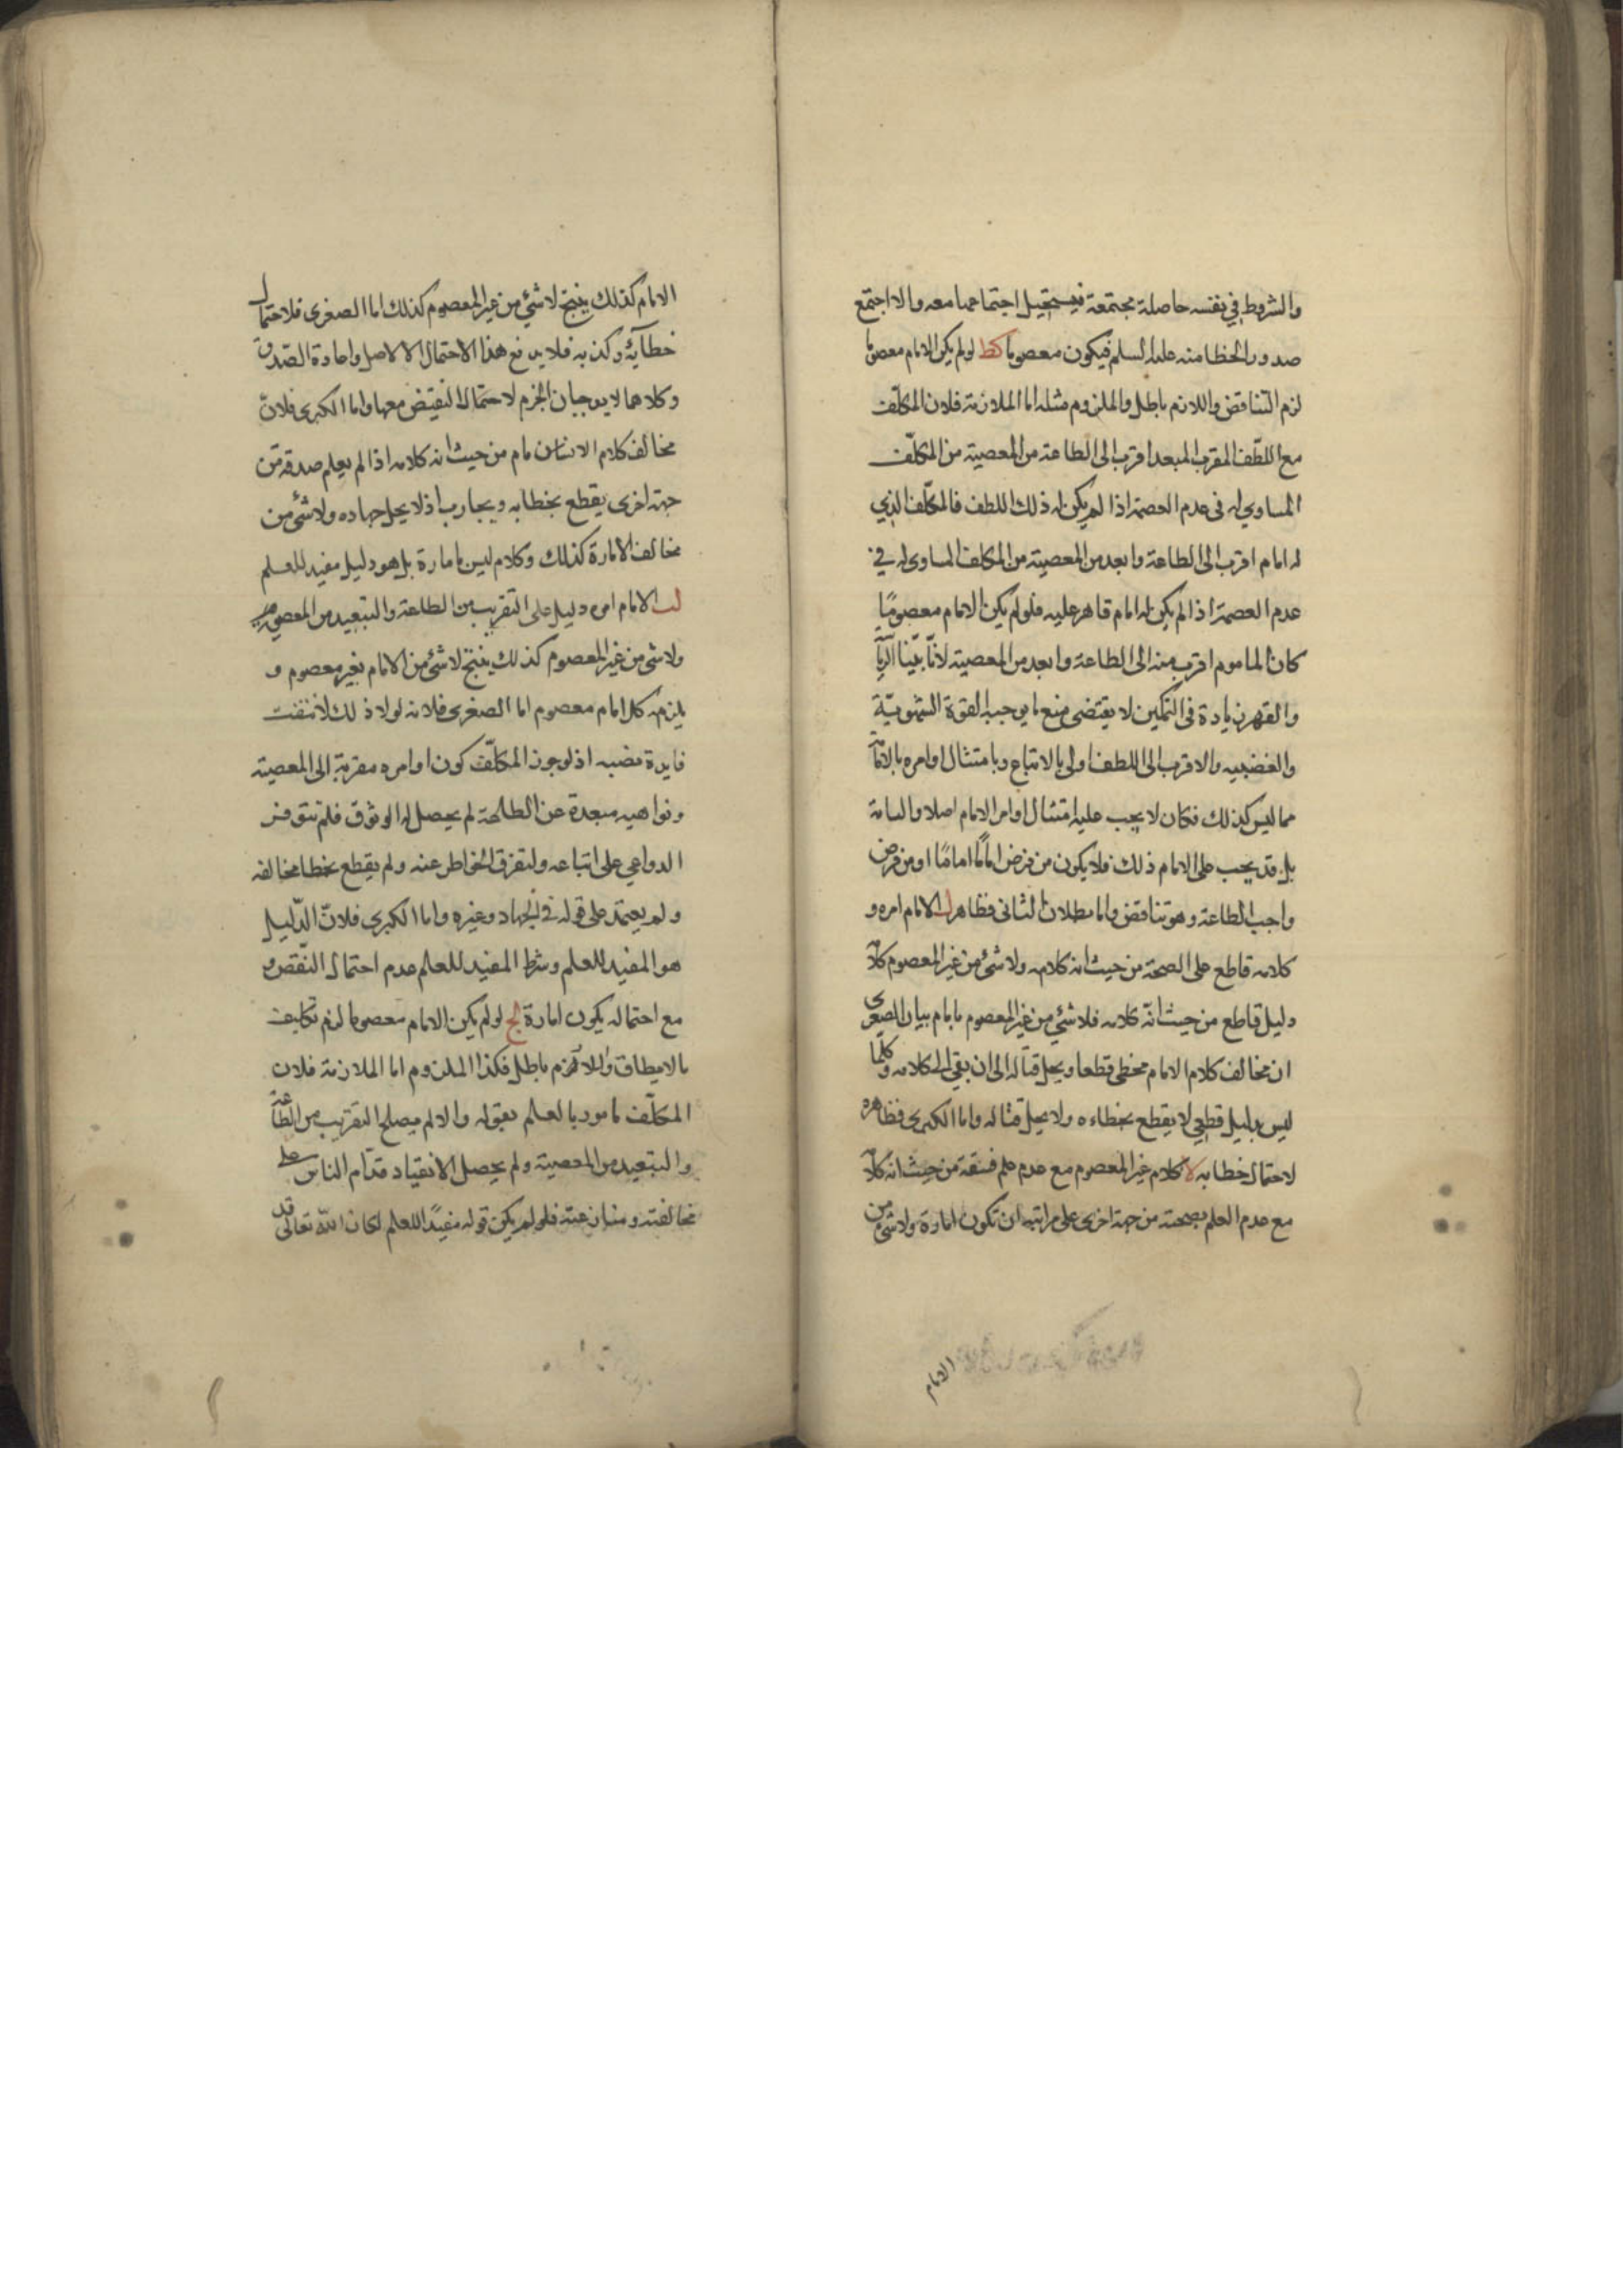 والشروط في نفسه حاصلة مجتمعة فيستحيل اجتماعهما معه والا اجتمع
صدور الخطا منه عليه السلم فيكون معصوما كط لو لم يكن الامام معصوما
لزم التناقض واللازم باطل والملزوم مثله اما الملازمة فلان المكلف
مع اللطف المقرب المبعد اقرب الى الطاعة من المعصية من المكلف
المساوي له في عدم العصمة اذا لم يكن له ذلك اللطف فالمكلف الذي
له امام اقرب الى الطاعة وابعد من المعصية من المكلف المساوي له في
عدم العصمة اذا لم يكن له امام قاهر عليه فلو لم يكن الامام معصومًا
كان الماموم اقرب منه الى الطاعة وابعد من المعصية لانّا بيّنا انّ
والقهر زيادة في التمكين لا يقتضي منع ما يوجب القوة الشهويّة
والغضبيه والاقرب الى اللطف اولى بالاتباع وبامتثال اوامره بالامامة
مما ليس كذلك فكان لا يجب عليه امتثال اوامر الامام اصلا والبتة
بل قد يجب على الامام ذلك فلا يكون من فرض امامًا امامًا او من فرض
واجب الطاعة وهو تناقض واما بطلان الثاني فظاهر ل الامام امره و
كلامه قاطع على الصحة من حيث انه كلامه ولا شئ من غير المعصوم كلامه
دليل قاطع من حيث انّه كلامه فلا شئ من غير المعصوم بامام بيان الصغرى
ان مخالف كلام الامام مخطي قطعا ويحل قتاله الى ان يفي الى كلامه وكلما
ليس بدليل قطعي لا يقطع بخطاءه ولا يحل قتاله واما الكبرى فظاهره
لاحتمال خطابه لا كلام غير المعصوم مع عدم علم فسقه من حيث انه كلامه
مع عدم العلم بصحته من جهة اخرى على مراتبه ان تكون امارة ولا شئ من
الامام
الامام كذلك ينتج لا شئ من غير المعصوم كذلك اما الصغرى فلاحتمال
خطايه وكذبه فلا يرفع هذا الاحتمال الا الاصل وامارة الصدق
وكلاهما لا يوجبان الجزم لاحتمال النقيض معها واما الكبرى فلانّ
مخالف كلام الامام من حيث انه كلامه اذا لم يعلم صدقه من
جهة اخرى يقطع بخطابه ويحارب اذ لا يحل جهاده ولا شئ من
مخالف الامارة كذلك وكلام ليس بامارة بل هو دليل مفيد للعلم
لب الامام امره دليل على التقريب من الطاعة والتبعيد من المعصية
ولا شئ من غير المعصوم كذلك ينتج لا شئ من الامام بغير معصوم و
يلزمه كل امام معصوم اما الصغرى فلانه لولا ذلك لانتفت
فايدة نصبه اذ لو جوز المكلّف كون اوامره مقربة الى المعصية
ونواهيه مبعدة عن الطاعة لم يحصل له الوثوق فلم تتوفر
الدواعي على اتباعه ولتفرق الخاطر عنه ولم يقطع بخطا مخالفه
ولم يعتمد على قوله في الجهاد وغيره واما الكبرى فلانّ الدّليل
هو المفيد للعلم وشرط المفيد للعلم عدم احتمال النّقض و
مع احتماله يكون امارة لج لو لم يكن الامام معصوما لزم تكليف
ما لا يطاق واللازم باطل فكذا الملزوم اما الملازمة فلان
المكلّف مامور بالعلم بقوله والا لم يصلح التقريب من الطاعة
والتبعيد من المعصية ولم يحصل الانقياد قدّام الناس على
مخالفته ومنازعته فلو لم يكن قوله مفيدًا للعلم لكان الله تعالى قد